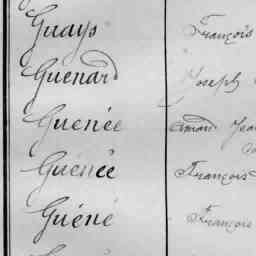 Guays François
Guenard Joseph
Guenée Amand Jean
Guénée François
Guéné François